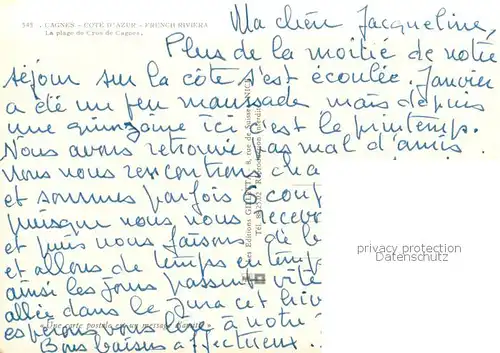 343 . CAGNES - COTE D'AZUR - FRENCH RIVIERA
La plage du Cros de Cagnes.
Ma chère Jacqueline,
Plus de la moitié de notre
séjour sur la côte s'est écoulée. Janvier
a été un peu maussade mais depuis
une quinzaine ici c'est le printemps.
Nous avons retrouvé pas mal d'amis.
Nous nous rencontrons cha
et sommes parfois coup
puisque nous nous recevo
et puis nous faisons de b
et allons de temps en temp
ainsi les jours passent vite
allée dans le Jura cet hiv
espérons vous à notre
Bons baisers affectueux.
Une carte postale est un message d'amitié
Les Editions GILLETTA, 8, rue de Suisse, NICE
Reproduction Interdite
privacy protection
Datenschutz